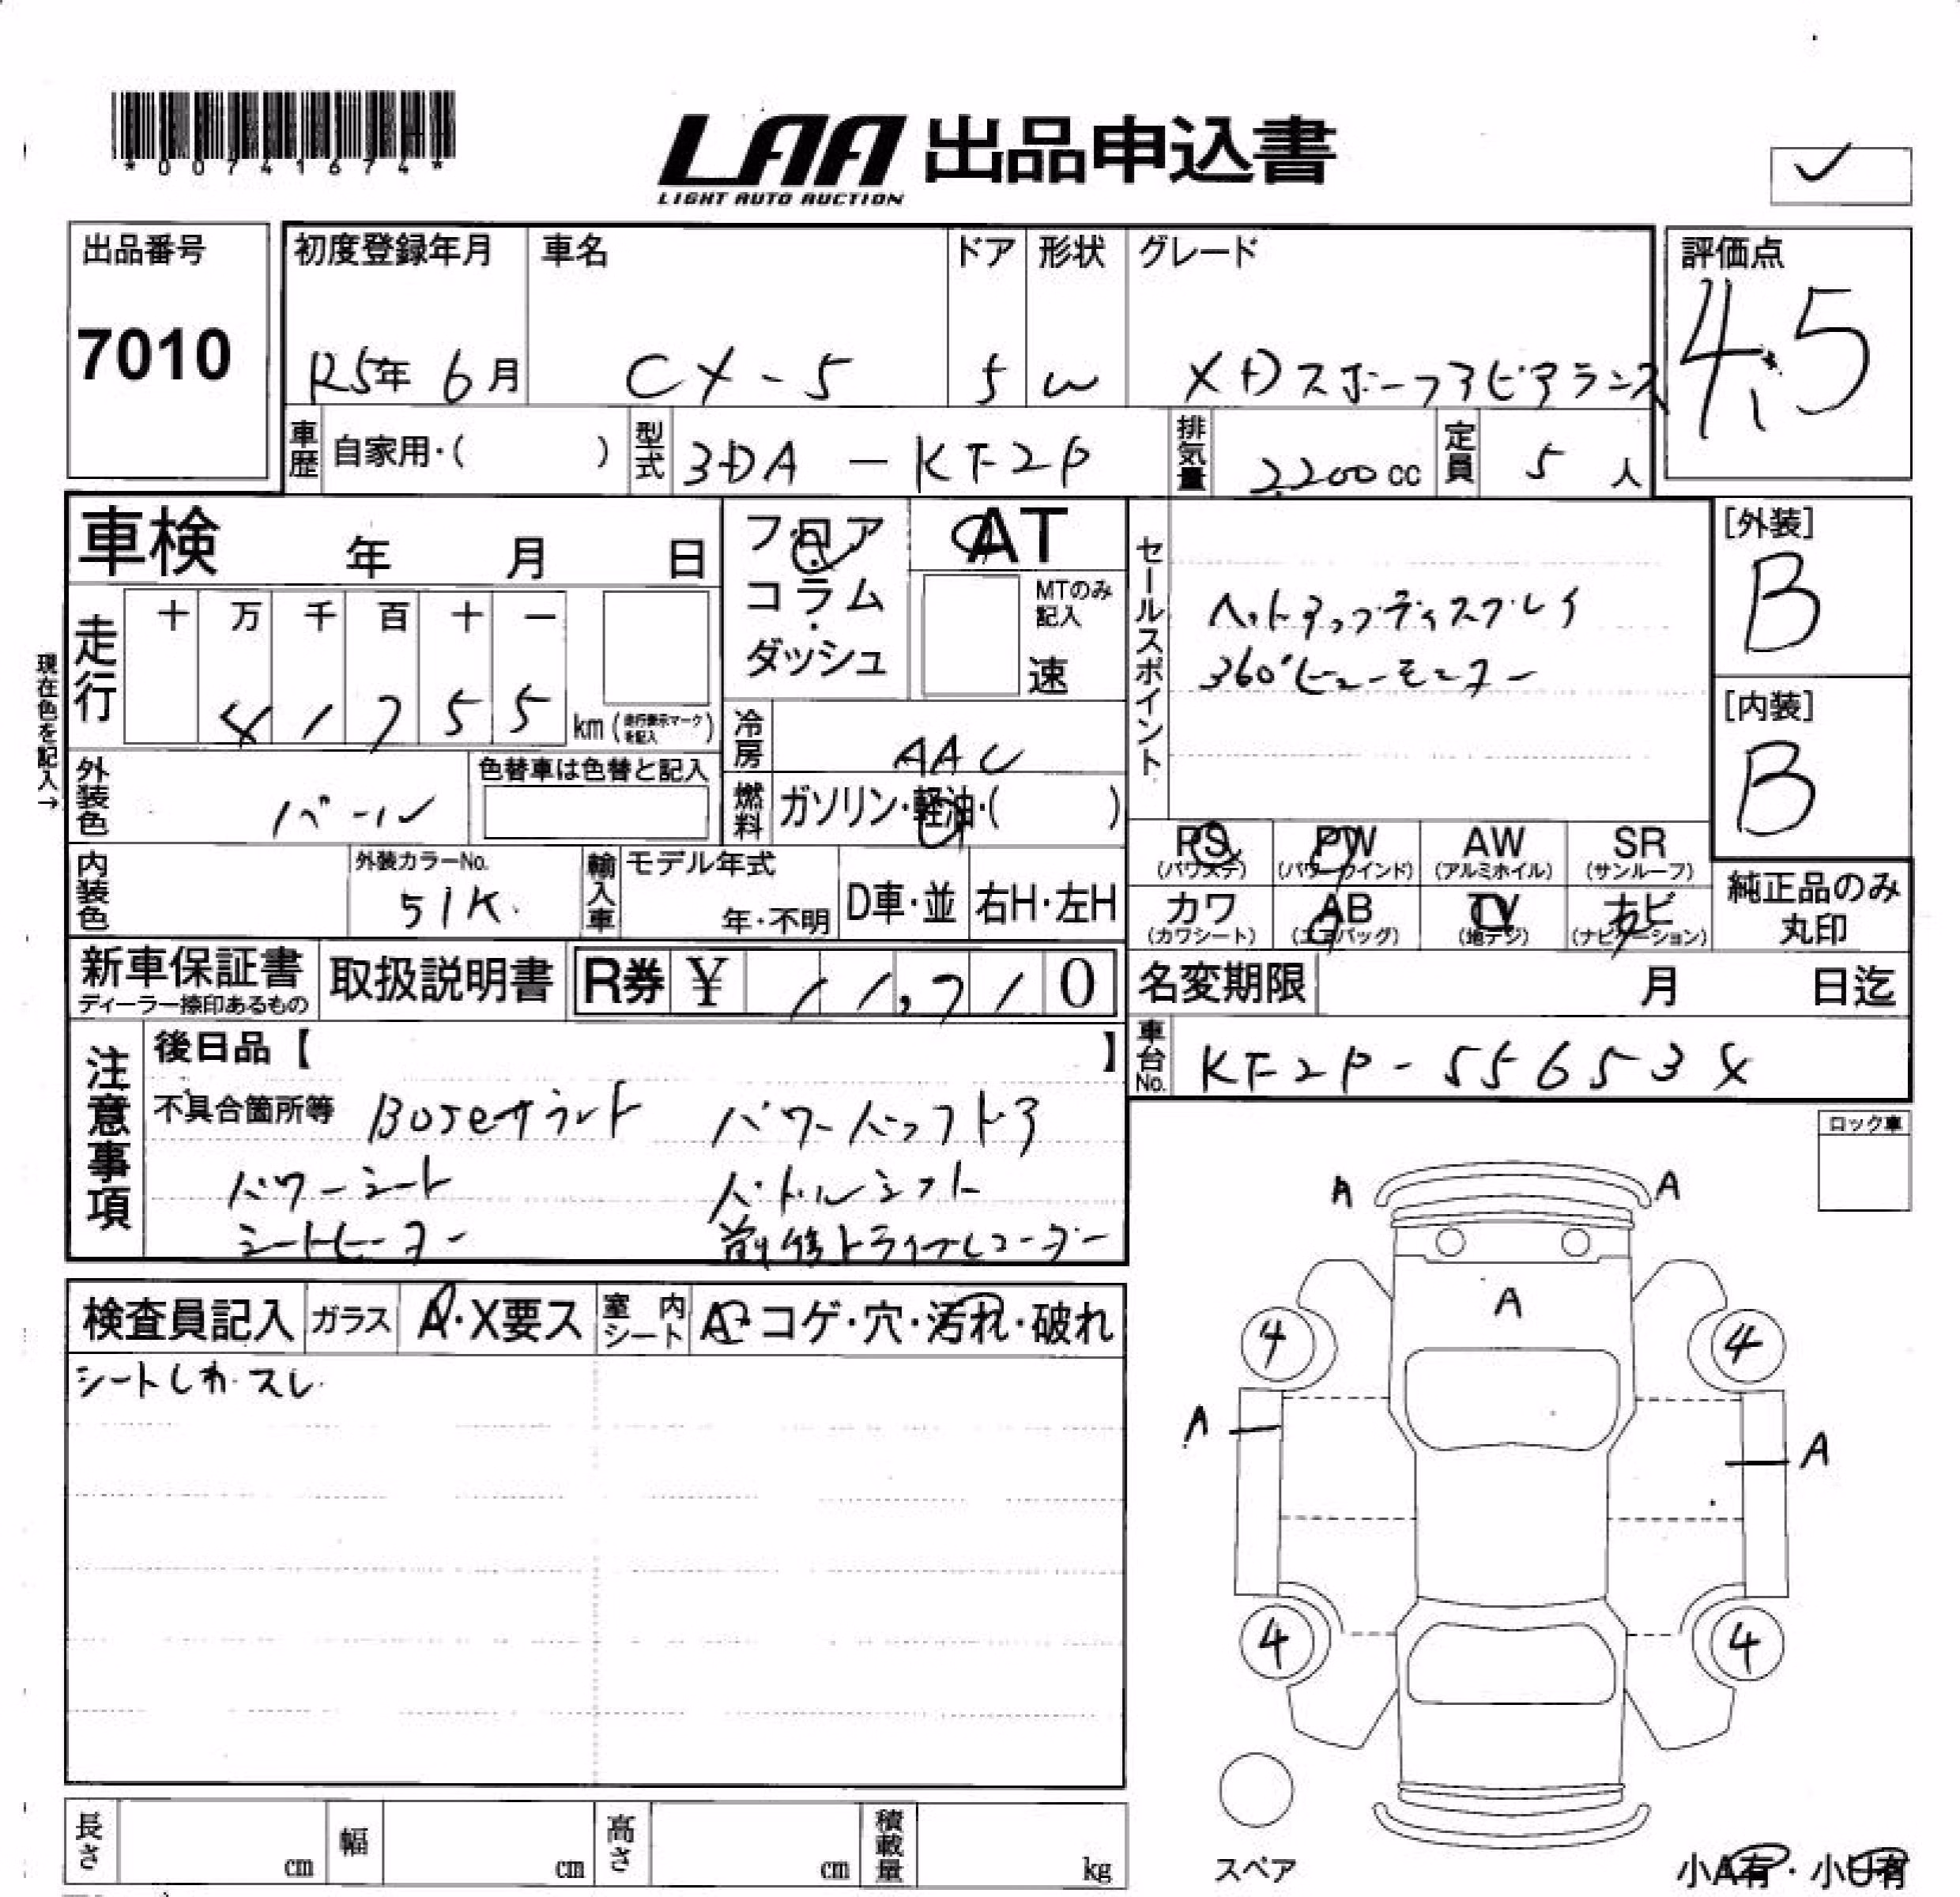 *00741674*
LAA 出品申込書
LIGHT AUTO AUCTION
出品番号
7010
初度登録年月 車名 ドア 形状 グレード
R5年 6月 CX-5 5 W XDスポーツアピアランス
評価点
4.5
車歴 自家用・( ) 型式 3DA-KF2P 排気量 2200cc 定員 5人
車検 年 月 日
フロア・コラム・ダッシュ
AT
MTのみ記入
速
セールスポイント
ヘットアップディスプレイ
360°ビューモニター
[外装]
B
[内装]
B
現在色を記入→
走行 十 万 千 百 十 一
41755 km (走行表示マークを記入)
冷房 AAC
外装色 パール 色替車は色替と記入
燃料 ガソリン・軽油・( )
内装色 外装カラーNo. 51K 輸入車 モデル年式 年・不明 D車・並 右H・左H
PS PW AW SR
(パワステ) (パワーウインド) (アルミホイル) (サンルーフ)
カワ AB TV ナビ
(カワシート) (エアバッグ) (地デジ) (ナビゲーション)
純正品のみ
丸印
新車保証書 取扱説明書 R券 ¥ 11,710
ディーラー捺印あるもの
名変期限 月 日迄
車台No. KF2P-556534
注意事項
後日品【 】
不具合箇所等 Boseサウンド パワーバックドア
パワーシート パドルシフト
シートヒーター 前後ドライブレコーダー
ロック車
検査員記入 ガラス A・X要ス 室内シート A コゲ・穴・汚れ・破れ
シートしわ・スレ
A A
A
4 4
A A
4 4
スペア
長さ cm 幅 cm 高さ cm 積載量 kg
小A有・小U有